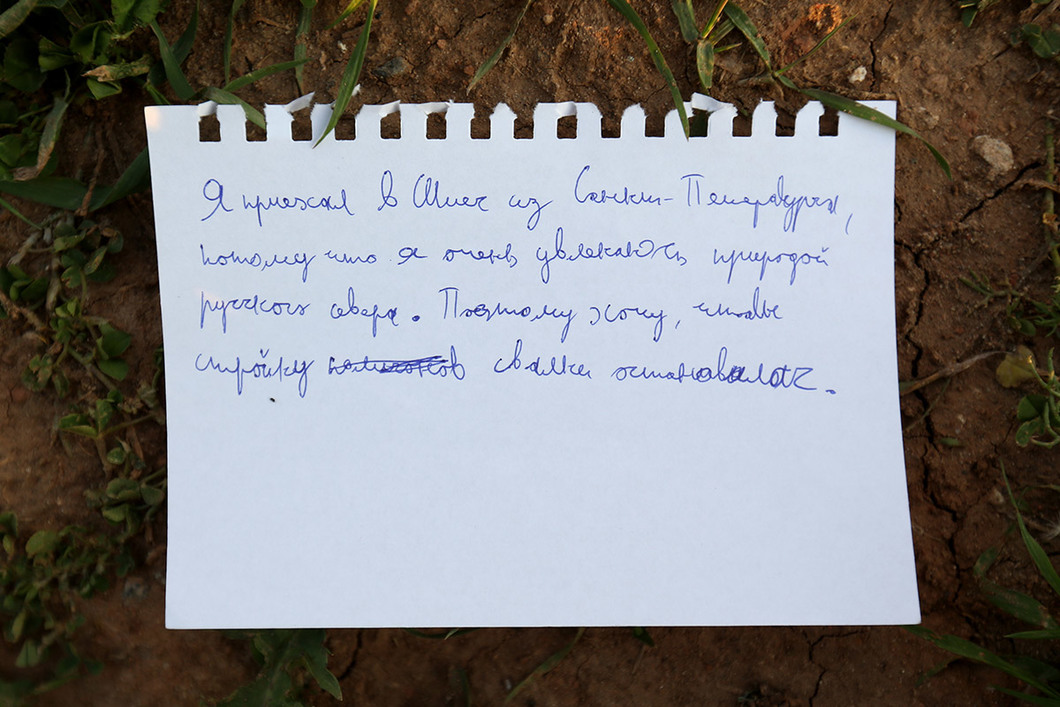 Я приехал в Шиес из Санкт-Петербурга,
потому что я очень увлекаюсь природой
русского севера. Поэтому хочу, чтобы
стройку свалки остановилась.